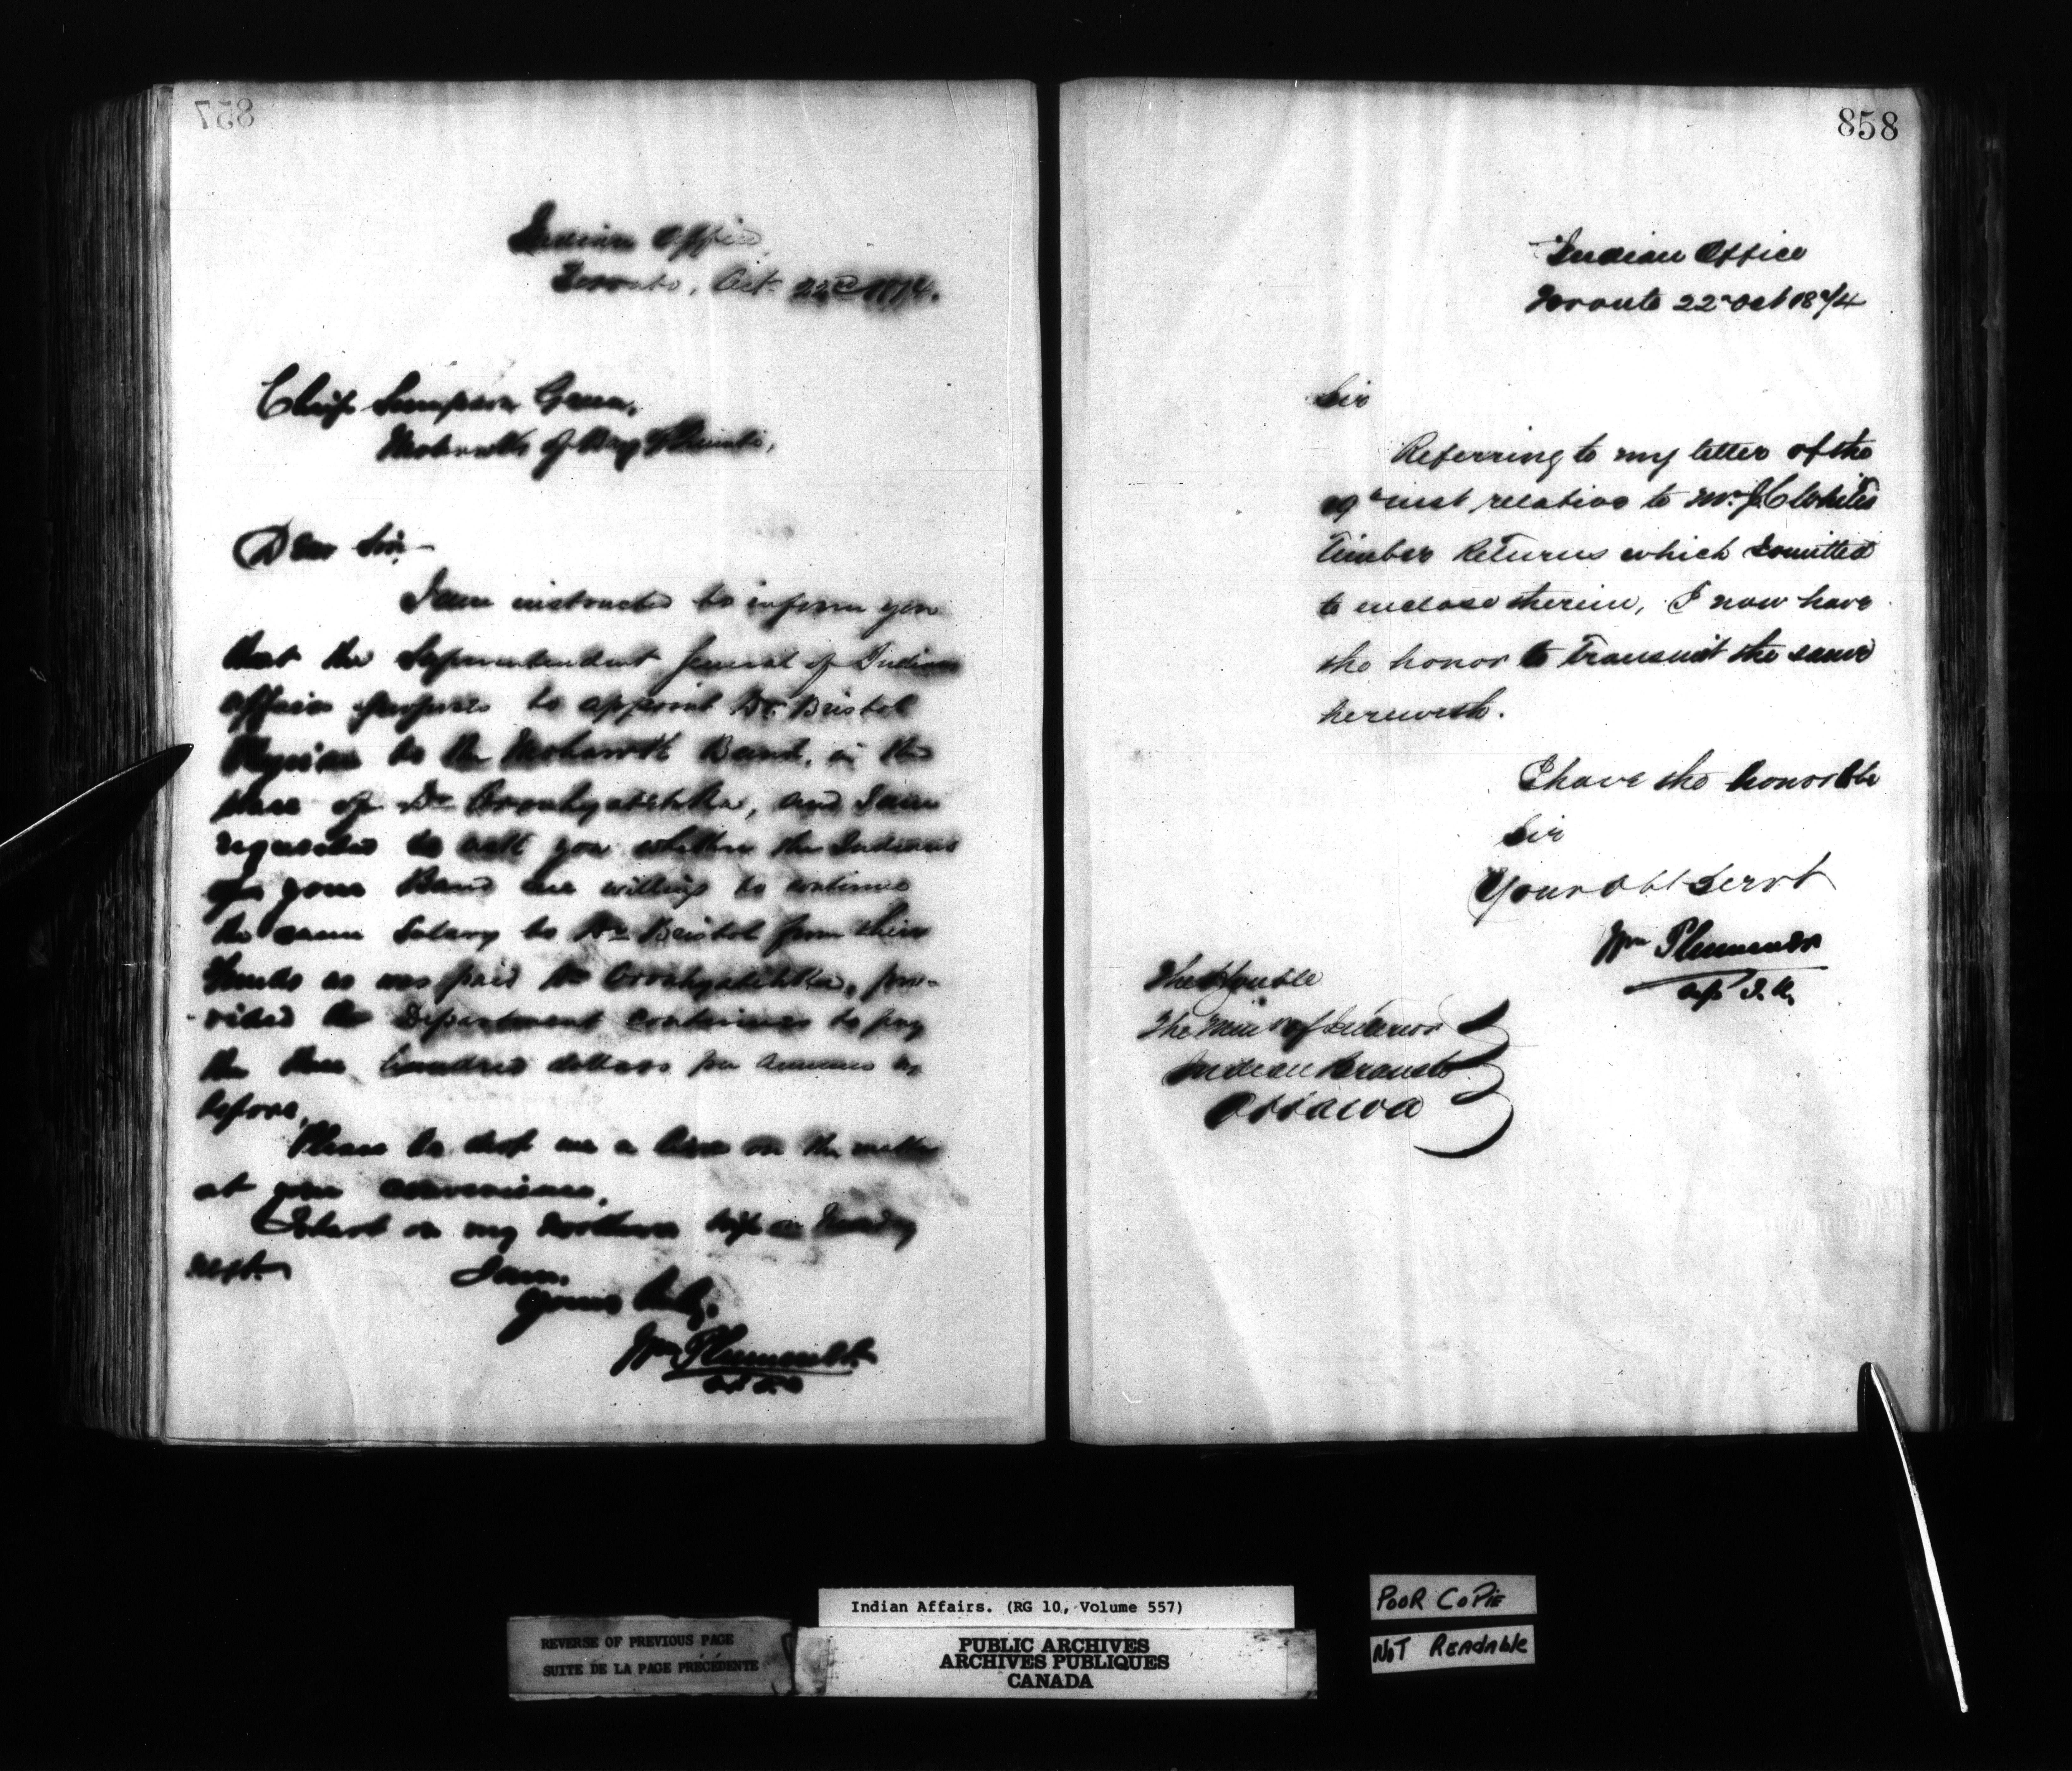 857
Indian Office,
Toronto, Oct. 22d 1874.
Chief Sampson Green,
Mohawks of Bay of Quinte,
Dear Sir,
I am instructed to inform you
that the Superintendent General of Indian
Affairs proposes to appoint Dr. Bristol
Physician to the Mohawk Band, in the
place of Dr Oronhyatekha, and I am
requested to ask you whether the Indians
of your Band are willing to continue
the same Salary to Dr Bristol from their
Funds as was paid Dr Oronhyatekha, pro-
vided the Department continues to pay
the hundred dollars per annum as
before.
Please to drop me a line on the matter
at your convenience.
I start on my northern trip on
next.
I am,
Yours truly,
Wm Plummer
858
Indian Office
Toronto 22d Oct 1874
Sir
Referring to my letter of the
inst relative to Mr. J. C. White's
Timber Returns which I omitted
to enclose therein, I now have
the honor to transmit the same
herewith.
I have the honor to be
Sir
Your Obt Servt
Wm Plummer
The Honble
The Minr of Interior
Indian Branch
Ottawa
Indian Affairs. (RG 10, Volume 557)
REVERSE OF PREVIOUS PAGE
SUITE DE LA PAGE PRÉCÉDENTE
PUBLIC ARCHIVES
ARCHIVES PUBLIQUES
CANADA
POOR COPIE
NOT READABLE